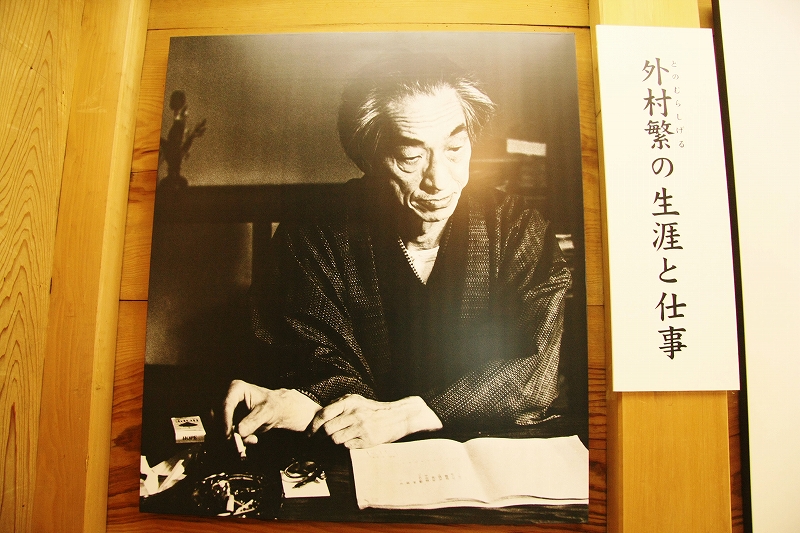 外村繁の生涯と仕事
とのむらしげる
HOPE